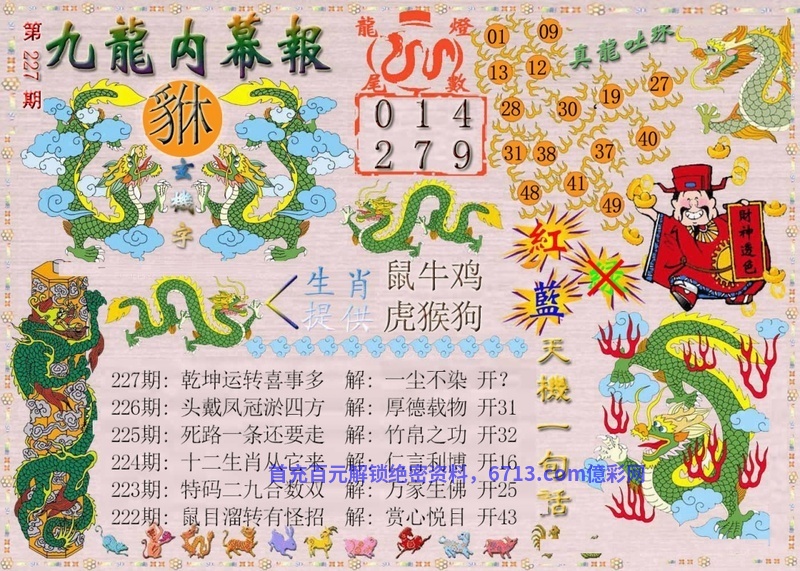 第227期
九龍内幕報
玄機字
龍燈
尾數
0 1 4
2 7 9
01 09
13 12
28 30 19 27
31 38 37 40
48 41 49
真龍吐珠
財神透色
紅
藍
生肖 鼠牛鸡
提供 虎猴狗
天機一句话
227期: 乾坤运转喜事多 解: 一尘不染 开?
226期: 头戴凤冠淤四方 解: 厚德载物 开31
225期: 死路一条还要走 解: 竹帛之功 开32
224期: 十二生肖从它来 解: 仁言利博 开16
首充百元解锁绝密资料，6713.com億彩网
223期: 特码二九合数双 解: 万家生佛 开25
222期: 鼠目溜转有怪招 解: 赏心悦目 开43